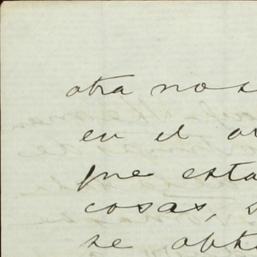 otra nos
en el
que esta
cosas,
se